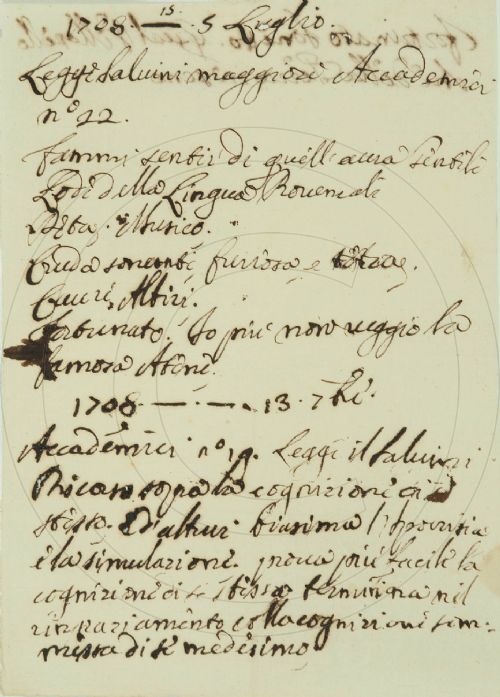 1708 — 15. 5 Luglio.
Legge Salvini maggiori Accademici
n.º 22.
fammi sentir di quell aura Gentile
Lode della Lingua Provenzale
Musico.
Cruda furiosa e
Cuori Altiri.
Fortunato. Io più non veggio la
famosa Atene.
1708 — · — . 13. 7bre.
Accademici nº 19. Legge il Salvini
sopra la cognizione di se
stesso. d'altrui biasima l'ipocrisia
e la simulazione. prova più facile la
cognizione di se stesso termina nel
ringraziamento colla cognizione
di se medesimo